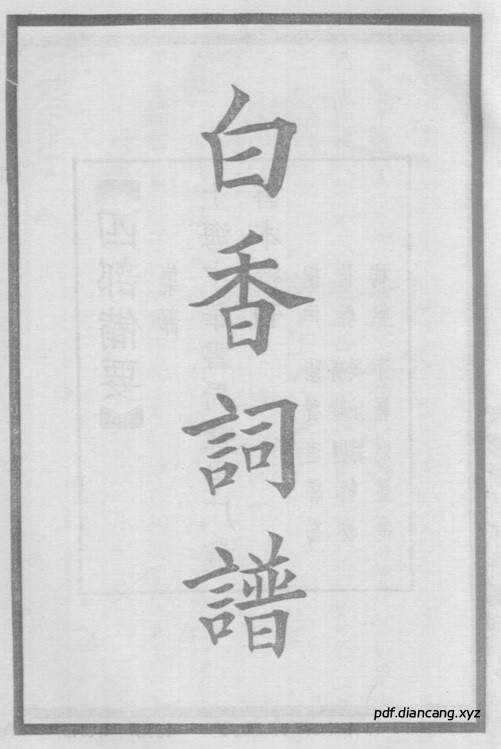 白香詞譜
pdf.diancang.xyz